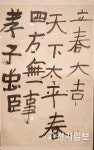 立春大吉
天下太平春
四方無一事
孝子忠臣